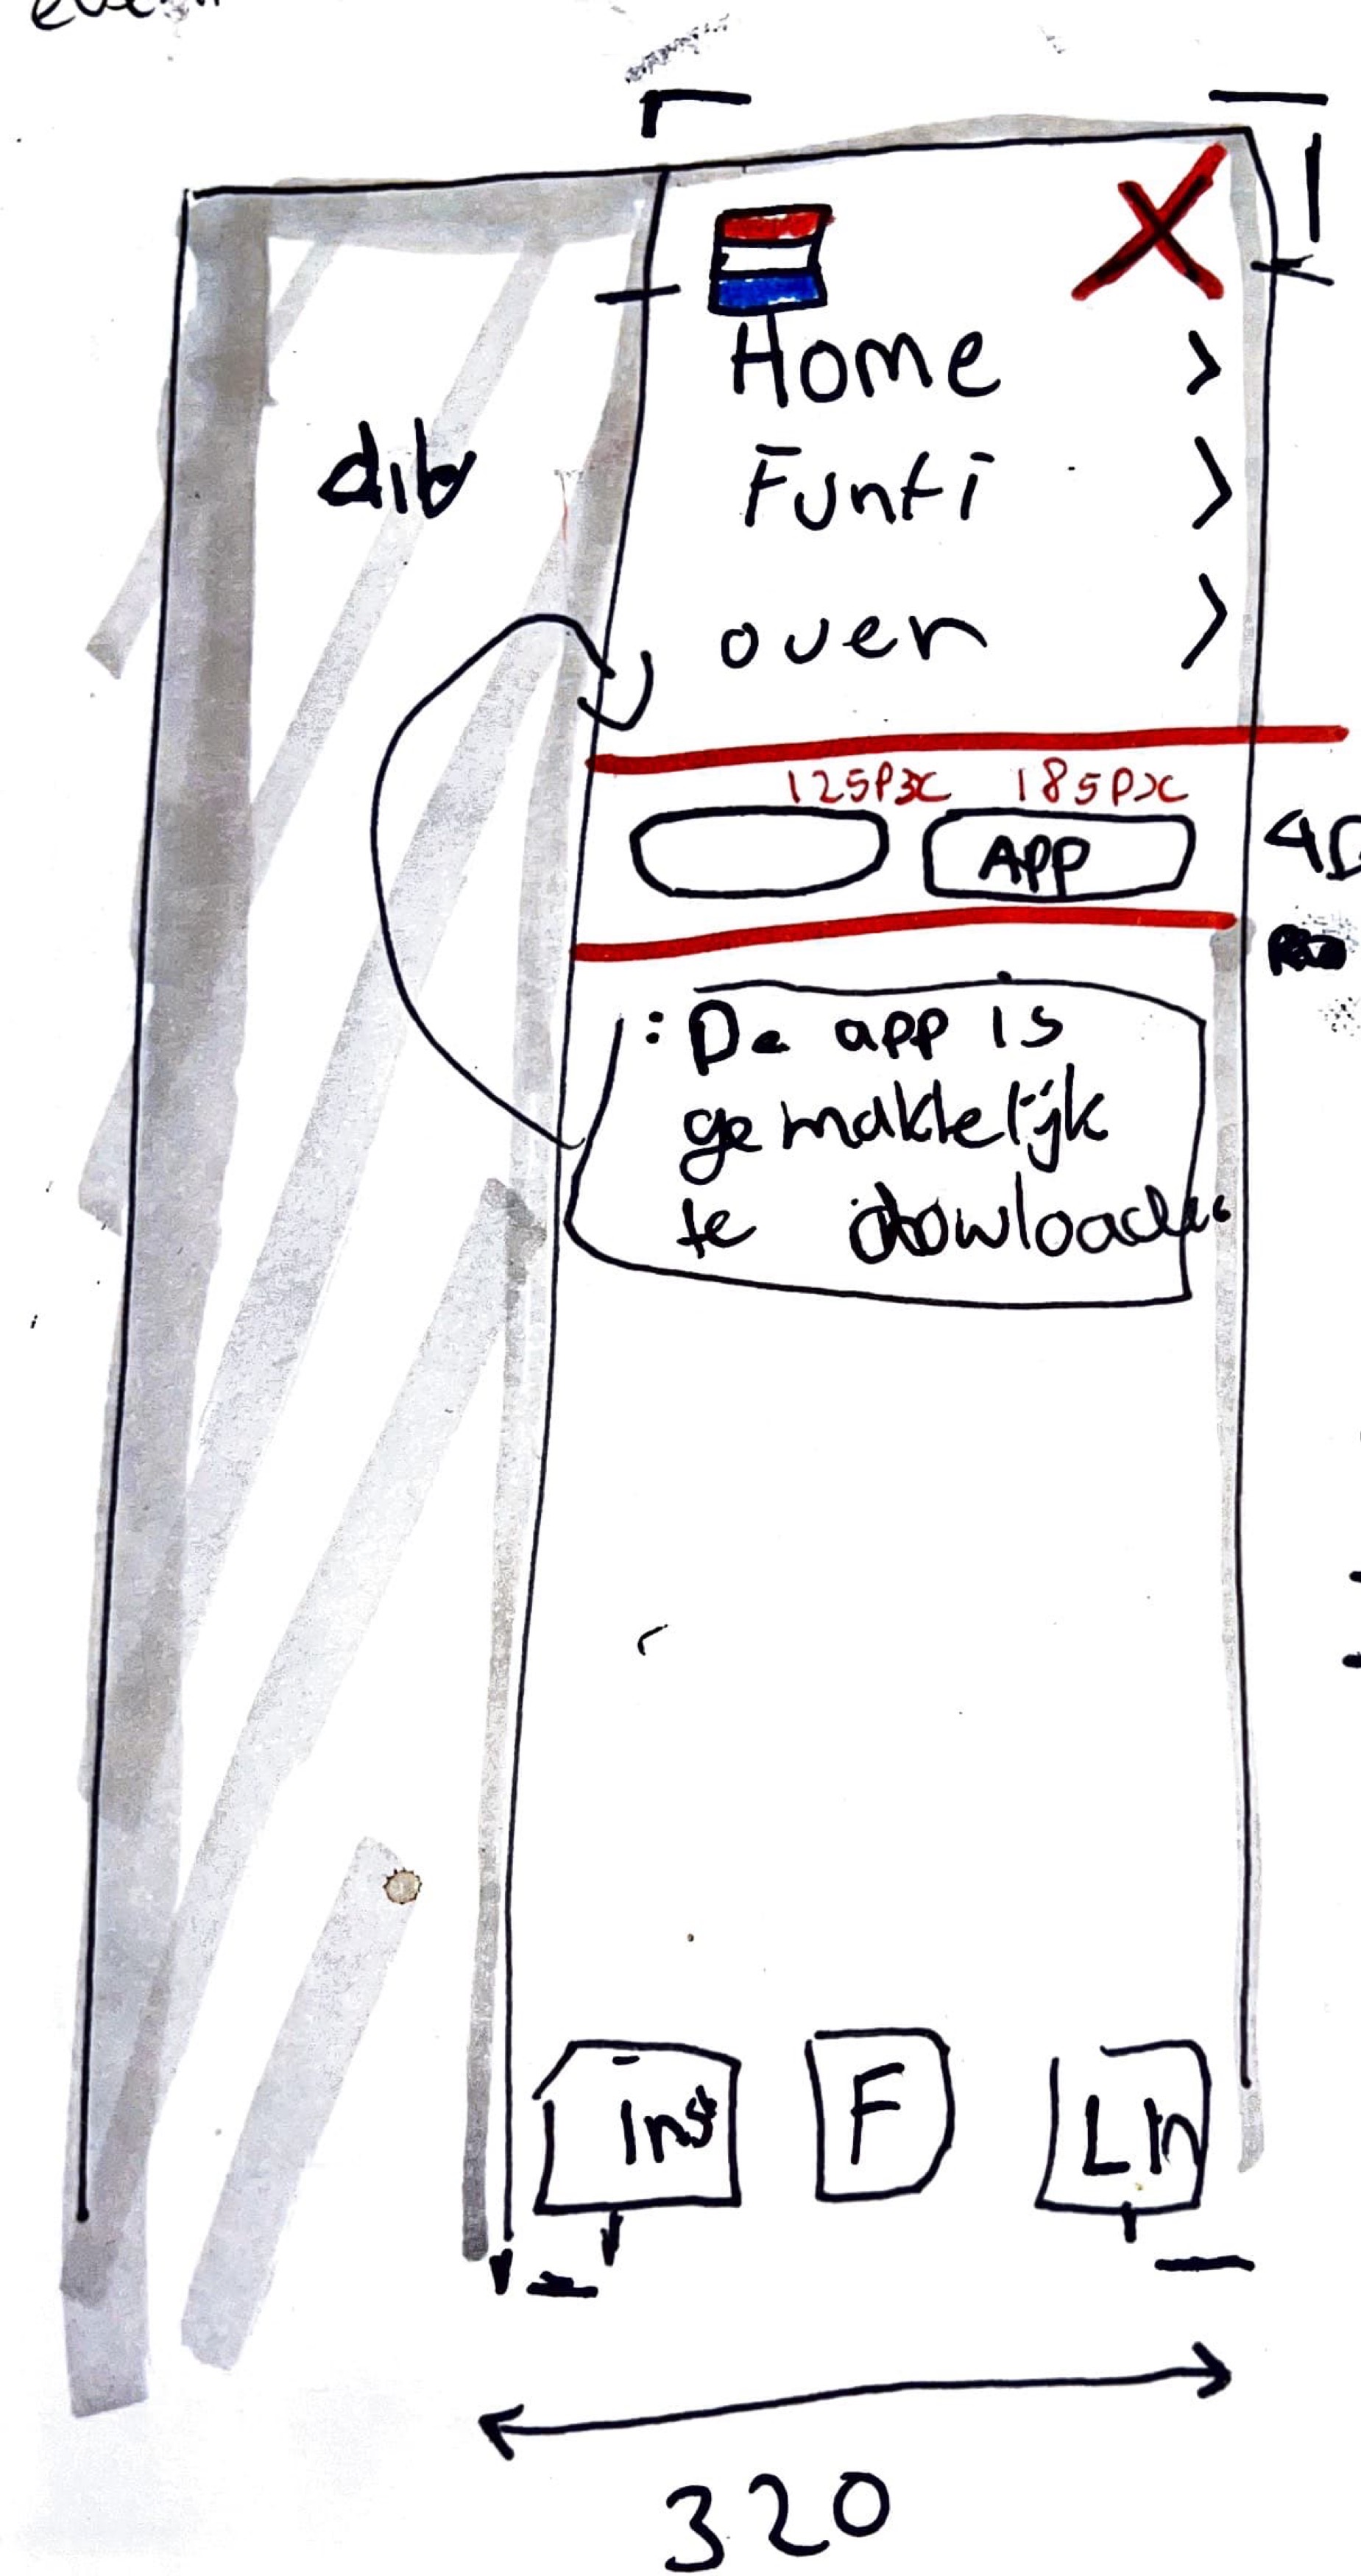 Home >
dib
Funti >
over >
125px 185px
APP
: De app is
gemakkelijk
te dowloaden
Inst F LIn
320